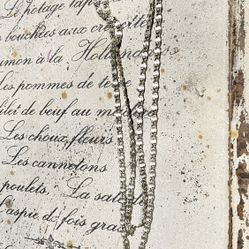 Le potage tap
s bouchées aux crevettes
umon à la Hollan
es pommes de terre
ilet de bœuf au ma
Les choux fleurs
Les cannetons
poulets. La sala
aspic de fois gras